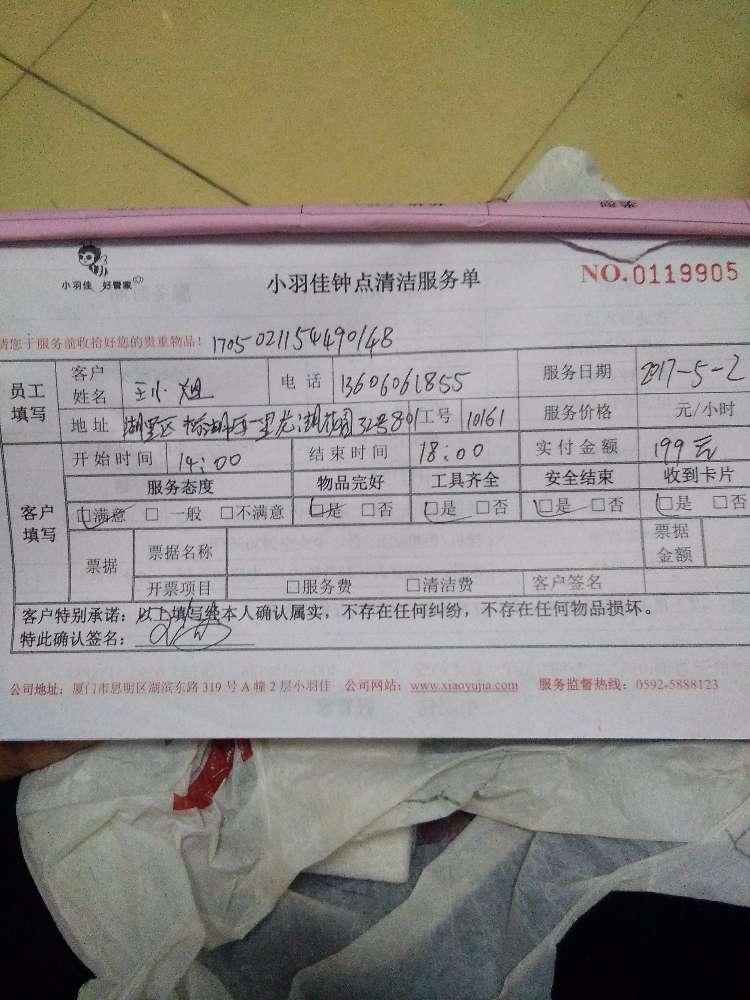 小羽佳 好管家
小羽佳钟点清洁服务单
NO.0119905
请您于服务前收拾好您的贵重物品！ 1705021154490148
员工填写 客户姓名 王小姐 电话 13606061855 服务日期 2017-5-2
地址 湖里区 龙湖花园32号801 工号 10161 服务价格 元/小时
客户填写 开始时间 14:00 结束时间 18:00 实付金额 199元
服务态度 物品完好 工具齐全 安全结束 收到卡片
☑满意 □一般 □不满意 ☑是 □否 ☑是 □否 ☑是 □否 ☑是 □否
票据 票据名称 票据金额
开票项目 □服务费 □清洁费 客户签名
客户特别承诺：以上填写经本人确认属实，不存在任何纠纷，不存在任何物品损坏。
特此确认签名：
公司地址：厦门市思明区湖滨东路 319 号 A 幢 2 层小羽佳 公司网站：www.xiaoyujia.com 服务监督热线：0592-5888123